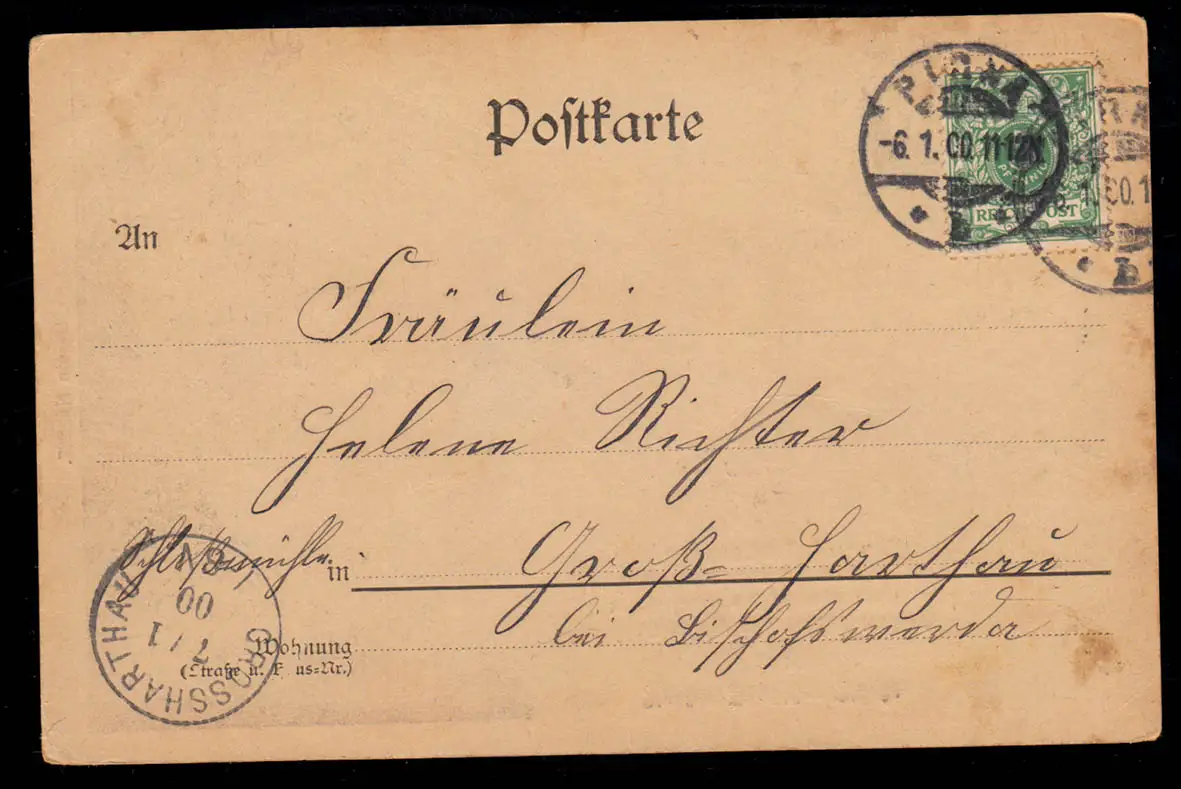 Postkarte
PIRNA
-6.1.00.11-12V.
b
REICHSPOST
PFENNIG
An
Fräulein
Helene Richter
Schloßmühle.
in Groß-Harthau
bei Bischofswerda
Wohnung
(Straße u. Haus-Nr.)
GROSSHARTHAU
7/1
00